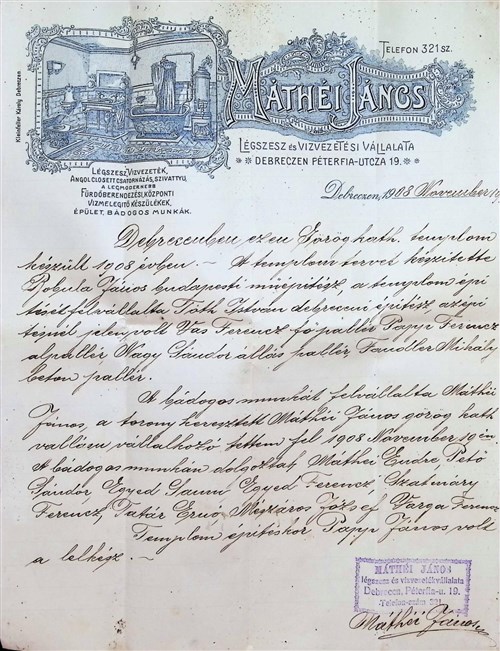 Kleinfeller Károly Debreczen
TELEFON 321 SZ.
MÁTHÉI JÁNOS
LÉGSZESZ ÉS VIZVEZETÉSI VÁLLALATA
DEBRECZEN PÉTERFIA-UTCZA 19.
LÉGSZESZ, VIZVEZETÉK,
ANGOL CLOSETT CSATORNÁZÁS, SZIVATTYU,
A LEGMODERNEBB
FÜRDŐBERENDEZÉSI, KÖZPONTI
VIZMELEGITŐ KÉSZÜLÉKEK,
ÉPÜLET, BÁDOGOS MUNKÁK.
Debreczen, 1908 November 19
Debreczenben ezen Görög kath. templom
készült 1908 évben. – A templom tervét készitette
Bobula János budapesti müépitész, a templom épi
tését felvállalta Tóth Istvan debreceni épitész, az épi
tésnél jelen volt Vas Ferencz fő pallér Papp Ferencz
alpallér Nagy Sándor állás pallér Fandler Mihály
beton pallér.
A bádogos munkát felvállalta Máthéi
János, a torony keresztett Máthéi János görög kath
vallásu vállalkozó tettem fel 1908 November 19 én.
A bádogos munkán dolgoztak Máthéi Endre Pető
Sándor, Egyed Samu Egyed Ferencz, Szatmáry
Ferencz, Tatár Ernő Mészáros József Varga Ferencz
Templom épitéskor Papp János volt
a lelkész. –
MÁTHÉI JÁNOS
légszesz és vizvezetékvállalata
Debrecen, Péterfia-u. 19.
Telefon-szám 321.
Máthéi János